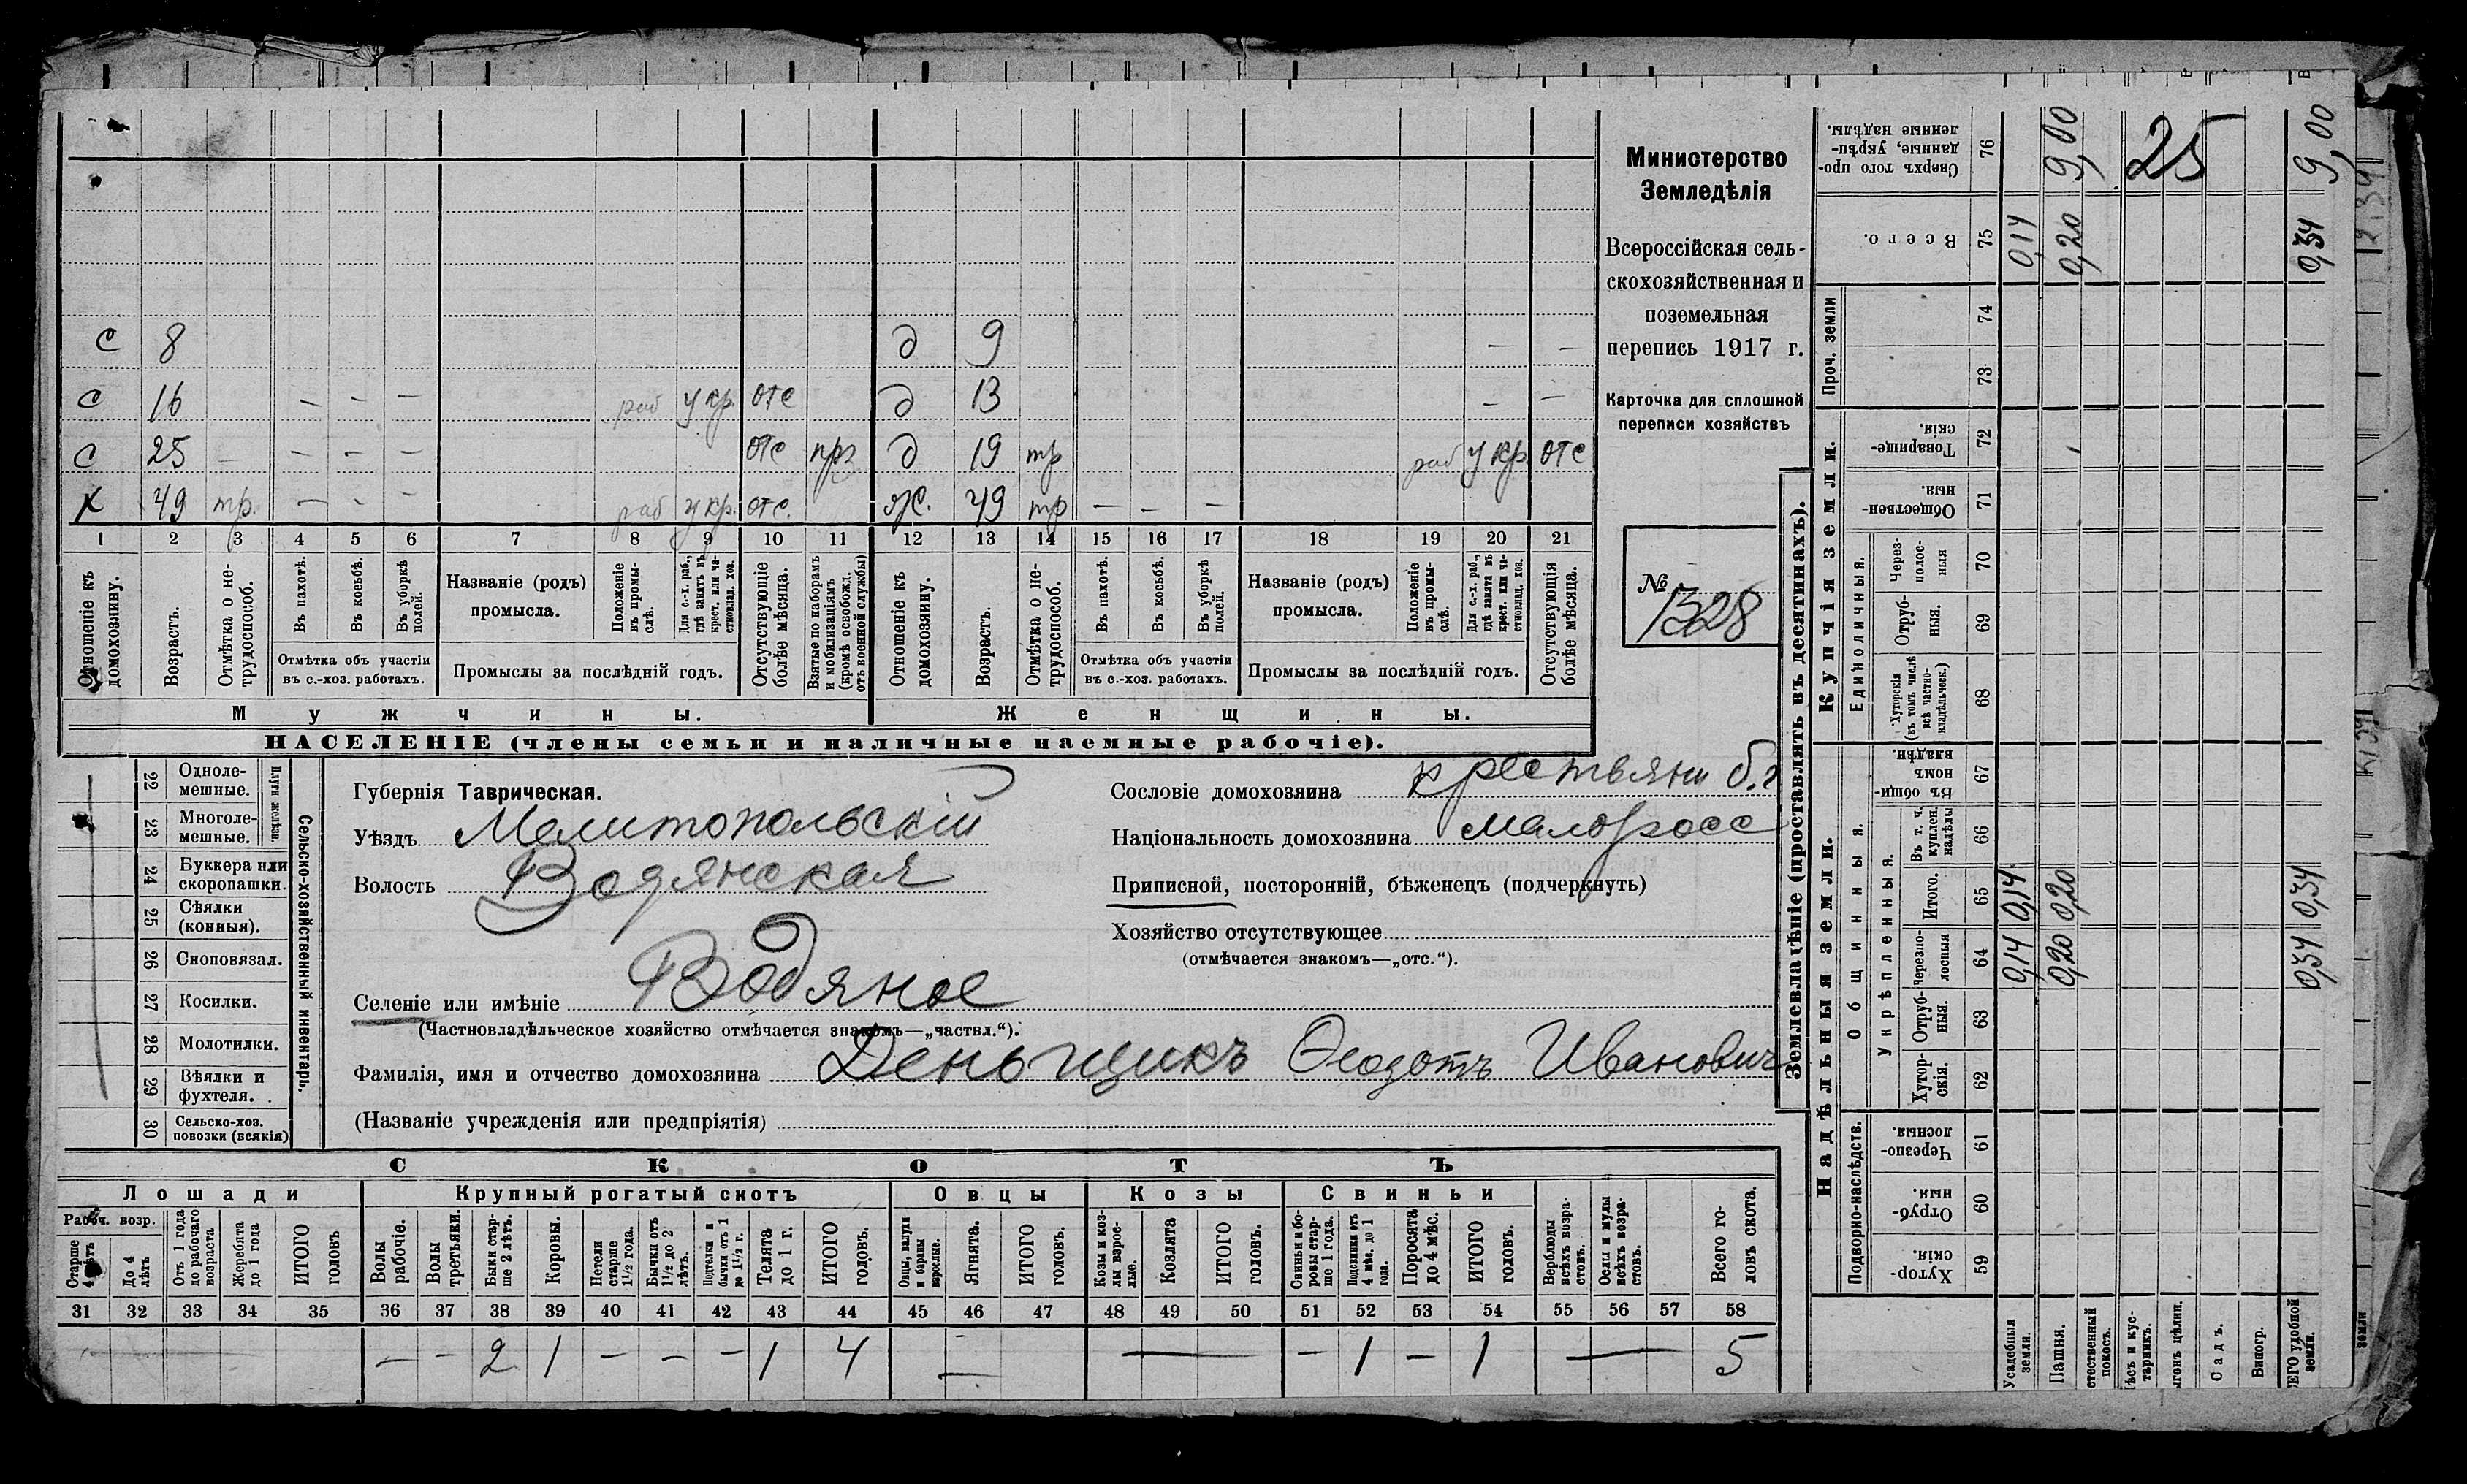 С 8 д 9
С 16 — — — раб у кр. отс д 13 — —
С 25 — — — — отс прз д 19 тр раб у кр отс
Х 49 тр. — — — раб у кр. отс. Ж. 49 тр — — —
1 2 3 4 5 6 7 8 9 10 11 12 13 14 15 16 17 18 19 20 21
Отношеніе къ домохозяину.
Возрастъ.
Отмѣтка о нетрудоспособ.
Въ пахотѣ.
Въ косьбѣ.
Въ уборкѣ полей.
Отмѣтка объ участіи
въ с.-хоз. работахъ.
Названіе (родъ)
промысла.
Положеніе въ промыслѣ.
Для с.-х. раб., гдѣ занятъ въ крест. или частновлад. хоз.
Промыслы за послѣдній годъ.
Отсутствующіе болѣе мѣсяца.
Взятые по наборамъ и мобилизаціямъ (кромѣ освобожд. отъ военной службы)
Отношеніе къ домохозяину.
Возрастъ.
Отмѣтка о нетрудоспособ.
Въ пахотѣ.
Въ косьбѣ.
Въ уборкѣ полей.
Отмѣтка объ участіи
въ с.-хоз. работахъ.
Названіе (родъ)
промысла.
Положеніе въ промыслѣ.
Для с.-х. раб., гдѣ занята въ крест. или частновлад. хоз.
Промыслы за послѣдній годъ.
Отсутствующія болѣе мѣсяца.
Мужчины. Женщины.
НАСЕЛЕНІЕ (члены семьи и наличные наемные рабочіе).
Министерство
Земледѣлія
Всероссійская сель-
скохозяйственная и
поземельная
перепись 1917 г.
Карточка для сплошной
переписи хозяйствъ
№ 1328
22 Одноле-
мешные.
23 Многоле-
мешные.
Плуги желѣзн.
24 Буккера или
скоропашки.
25 Сѣялки
(конныя).
26 Сноповязал.
27 Косилки.
28 Молотилки.
29 Вѣялки и
фухтеля.
30 Сельско-хоз.
повозки (всякія)
Сельско-хозяйственный инвентарь.
Губернія Таврическая.
Уѣздъ Мелитопольскій
Волость Водянская
Селеніе или имѣніе Водяное
(Частновладѣльческое хозяйство отмѣчается знакомъ—„частвл.“).
Фамилія, имя и отчество домохозяина Деньщикъ Ѳеодотъ Иванович
(Названіе учрежденія или предпріятія)
Сословіе домохозяина крестьянин б.г
Національность домохозяина малоросс
Приписной, посторонній, бѣженецъ (подчеркнуть)
Хозяйство отсутствующее
(отмѣчается знакомъ—„отс.“).
СКОТЪ
Лошади Крупный рогатый скотъ Овцы Козы Свиньи
Рабоч. возр.
Старше 4 лѣтъ
До 4 лѣтъ
Отъ 1 года до рабочаго возраста
Жеребята до 1 года
ИТОГО головъ
Волы рабочіе.
Волы третьяки.
Быки старше 2 лѣтъ.
Коровы.
Нетели старше 1½ года.
Бычки отъ 1½ до 2 лѣтъ.
Подтелки и бычки отъ 1 до 1½ г.
Телята до 1 г.
ИТОГО головъ.
Овцы, валухи и бараны взрослые.
Ягнята.
ИТОГО головъ.
Козы и козлы взрослые.
Козлята
ИТОГО головъ.
Свиньи и боровы старше 1 года.
Подсвинки отъ 4 мѣс. до 1 года.
Поросята до 4 мѣс.
ИТОГО головъ.
Верблюды всѣхъ возрастовъ.
Ослы и мулы всѣхъ возрастовъ.
Всего головъ скота.
31 32 33 34 35 36 37 38 39 40 41 42 43 44 45 46 47 48 49 50 51 52 53 54 55 56 57 58
— — 2 1 — — — 1 4 — — — 1 — 1 — 5
Землевладѣніе (проставлять въ десятинахъ).
Надѣльныя земли. Купчія земли. Проч. земли
Подворно-наслѣдств.
Общинныя.
Укрѣпленныя.
Единоличныя.
59 Хутор-
скія.
60 Отруб-
ныя.
61 Черезпо-
лосныя.
62 Хутор-
скія.
63 Отруб-
ныя.
64 Черезпо-
лосныя
65 Итого.
66 Въ т. ч. куплен. надѣлы
67 Въ общин-
номъ
владѣн.
68 Хуторскія (въ томъ числѣ всѣ частно-владѣльческ.)
69 Отруб-
ныя.
70 Через-
полос-
ныя
71 Обществен-
ныя.
72 Товарище-
скія.
73
74
75 Всего.
76 Сверхъ того про-
данные, укрѣп-
ленные надѣлы.
Усадебныя земли. 0,14 0,14 0,14
Пашня. 0,20 0,20 0,20 9,00
Естественный покосъ.
Лѣсъ и кустарникъ. 25
Выгонъ цѣлин.
Садъ.
Виногр.
ВСЕГО удобной земли. 0,34 0,34 0,34 9,00